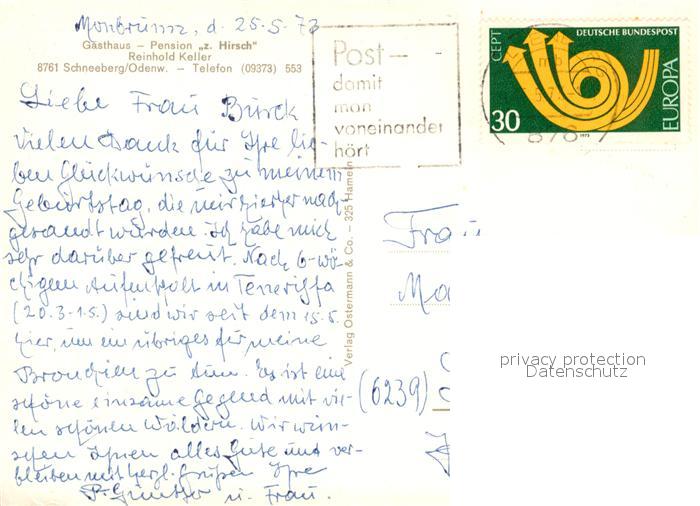 Monbrunn, d. 25.5.73
Gasthaus – Pension „z. Hirsch"
Reinhold Keller
8761 Schneeberg/Odenw. – Telefon (09373) 553
Liebe Frau Burck
Vielen Dank für Ihre lie-
ben Glückwünsche zu meinem
Geburtstag, die mir hierher nach-
gesandt wurden. Ich habe mich
sehr darüber gefreut. Nach 6-wö-
chigem Aufenthalt in Teneriffa
(20.3-1.5.) sind wir seit dem 15.5.
hier, um ein übriges für meine
Bronchien zu tun. Es ist eine
schöne einsame Gegend mit vie-
len schönen Wäldern. Wir wün-
schen Ihnen alles Gute und ver-
bleiben mit herzl. Grüßen Ihre
P. Günther u. Frau.
Post –
damit
man
voneinander
hört
CEPT
DEUTSCHE BUNDESPOST
EUROPA
30
1973
Verlag Ostermann & Co. – 325 Hameln
Frau
Ma
(6239)
privacy protection
Datenschutz